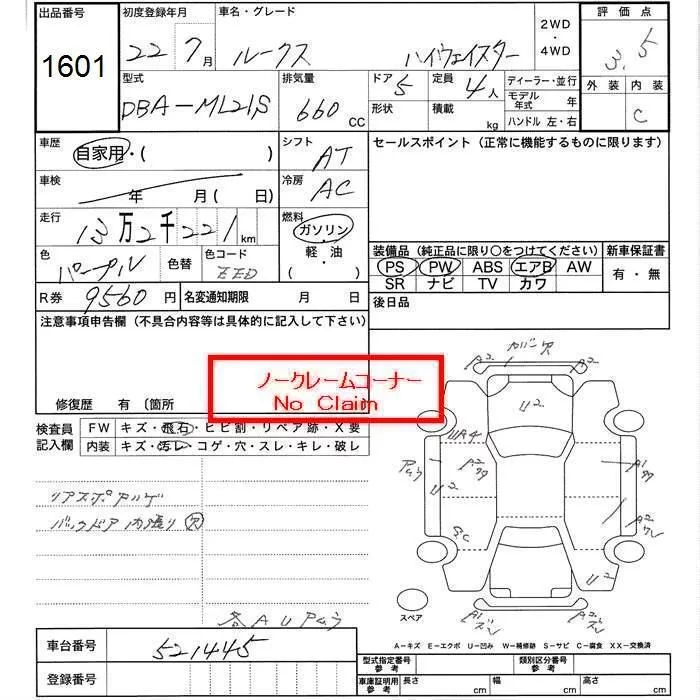 出品番号 初度登録年月 車名・グレード 2WD ・ 4WD 評価点
1601 22 7月 ルークス ハイウェイスター 3.5
型式 排気量 ドア 5 定員 4人 ディーラー・並行 外装 内装
DBA-ML21S 660 CC 形状 積載 kg モデル年式 年 C
ハンドル 左・右
車歴 自家用・( ) シフト AT セールスポイント(正常に機能するものに限ります)
車検 年 月(日) 冷房 AC
走行 13万2千221km 燃料 ガソリン・軽・油・( )
色 パープル 色替 色コード 装備品(純正品に限り○をつけてください) 新車保証書
PS PW ABS エアB AW 有・無
SR ナビ TV カワ
R券 9560円 名変通知期限 月 日 後日品
注意事項申告欄(不具合内容等は具体的に記入して下さい)
ノークレームコーナー
No Claim
修復歴 有〔箇所
検査員記入欄 FW キズ・飛石・ヒビ割・リペア跡・X要
内装 キズ・汚レ・コゲ・穴・スレ・キレ・破レ
バックドア内張り穴
カバー穴
A2
A2
U2
UA4
A2
U2
U2
スペア
A-キズ E-エクボ U-凹み W-補修跡 S-サビ C-腐食 XX-交換済
車台番号 521445
登録番号
型式指定番号参考 類別区分番号参考
車庫証明用参考 長さ cm 幅 cm 高さ cm